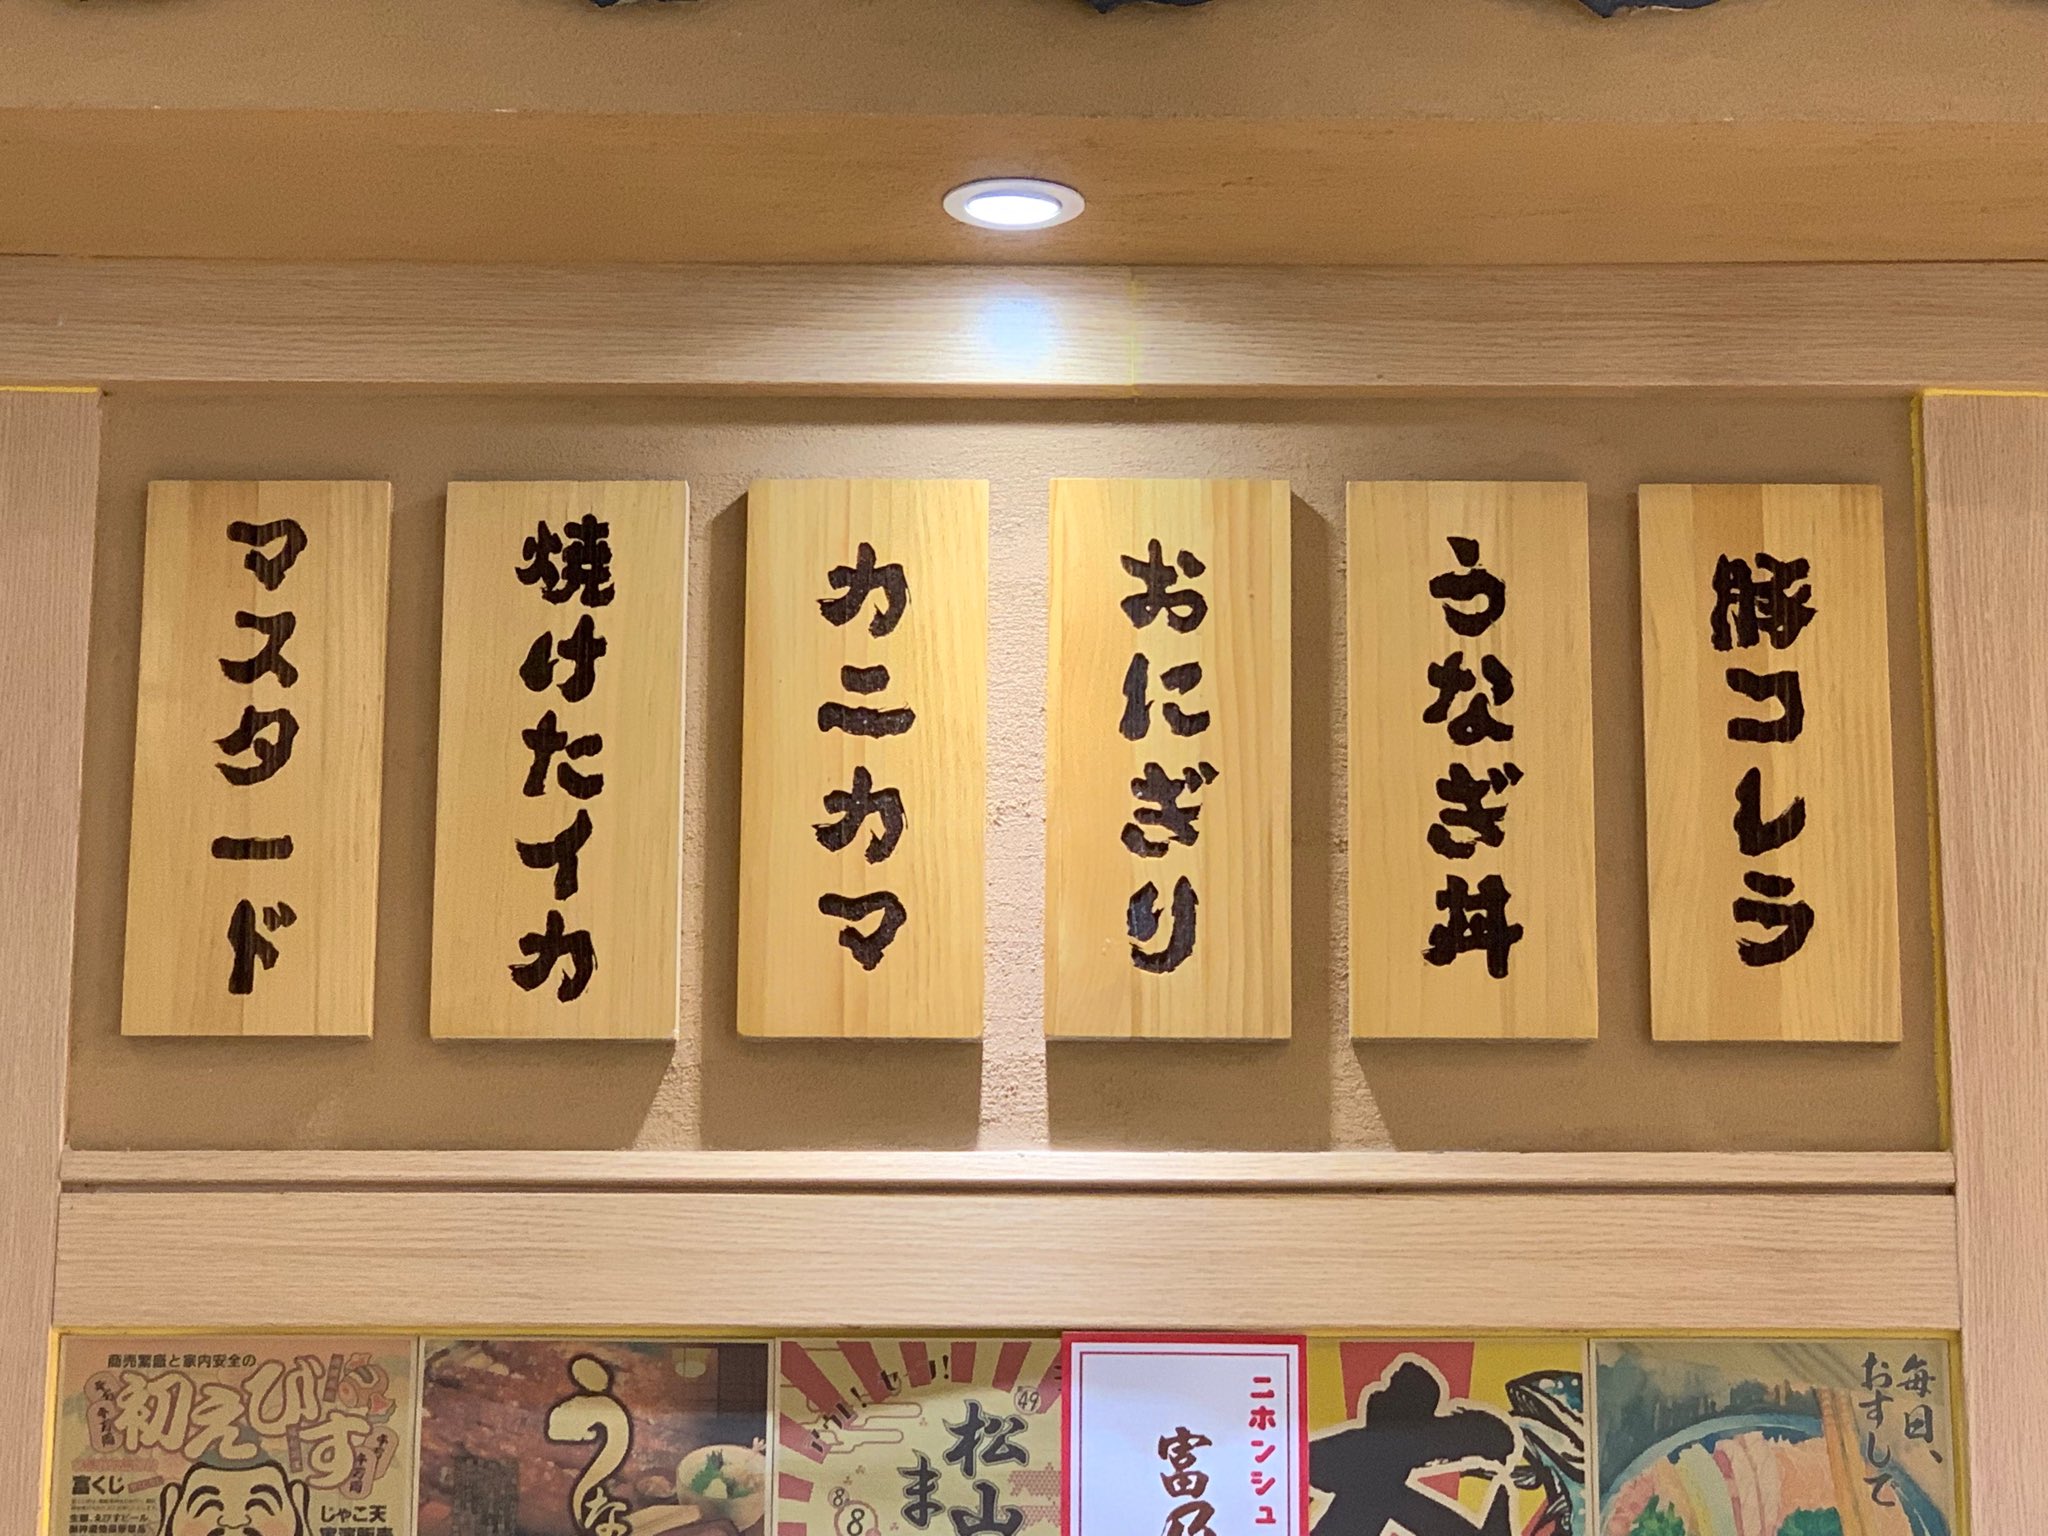 豚コレラ
うなぎ丼
おにぎり
カニカマ
焼けたイカ
マスタード
商売繁盛と家内安全の
初えびす
富くじ
じゃこ天
うな
松山
ま
49
8
8
8
ニホンシュ
富乃
大
毎日、
おすして